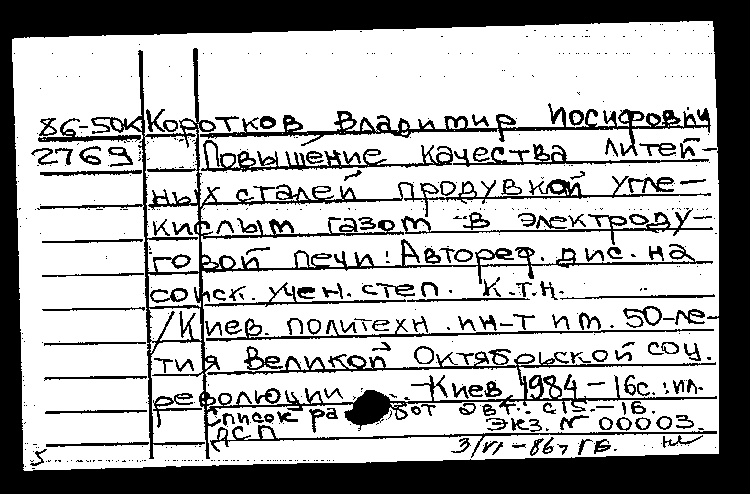 86-50к Коротков Владимир Иосифович
2769 Повышение качества литей-
ных сталей продувкой угле-
кислым газом в электроду-
говой печи: Автореф. дис. на
соиск. учен. степ. к.т.н.
/Киев. политехн. ин-т им. 50-ле-
тия Великой Октябрьской соц.
революции. – Киев, 1984 – 16с.: ил.
Список работ авт.: с15.–16.
ДСП Экз. № 00003.
3/VI–86г ГБ.